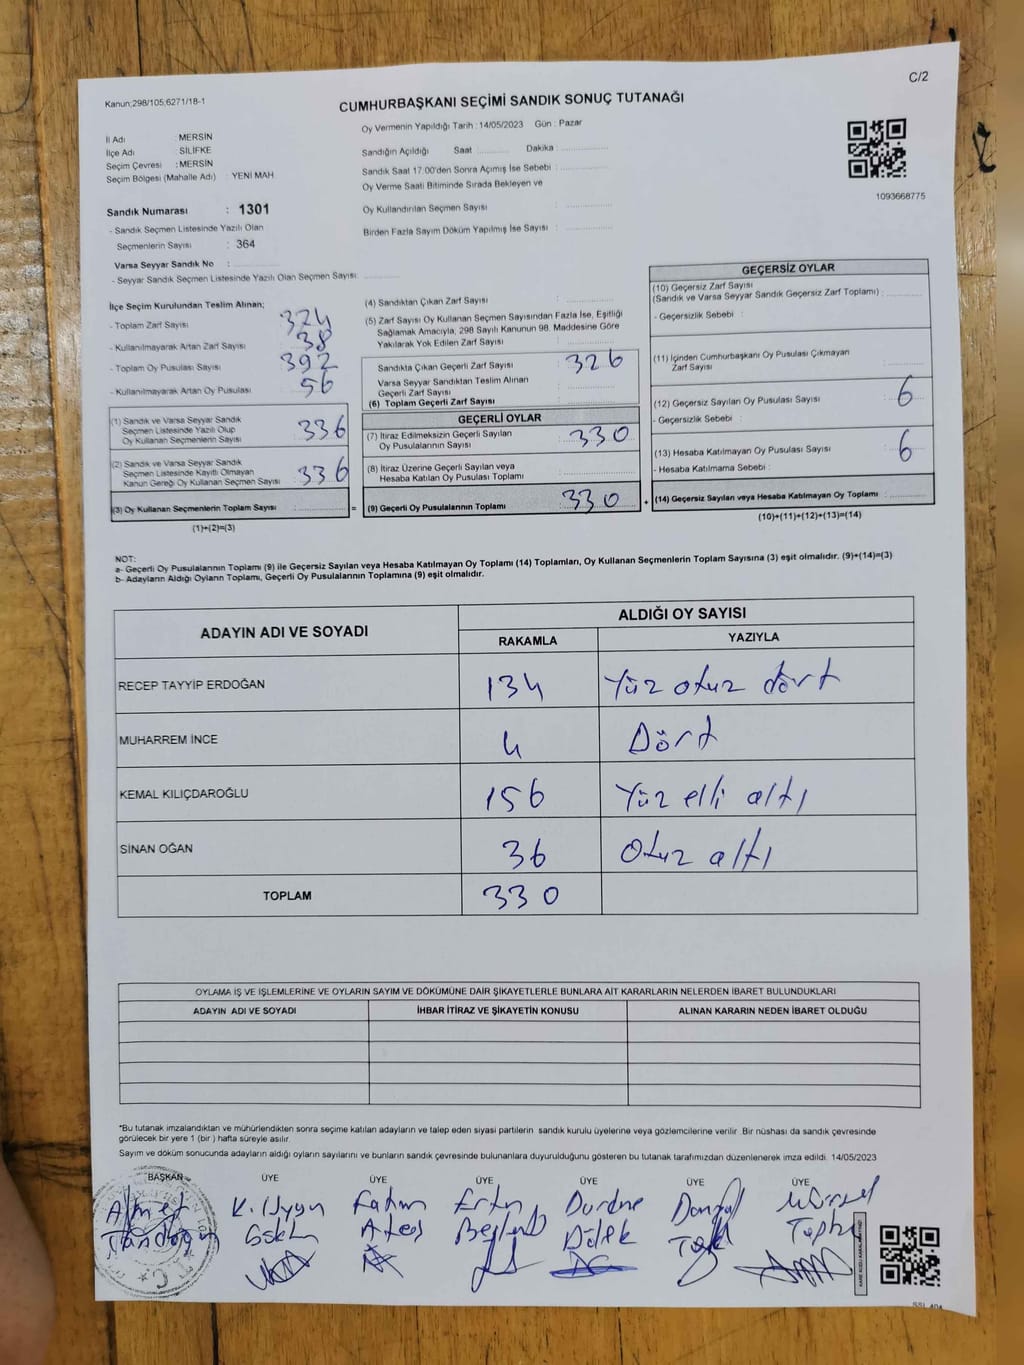 C/2
Kanun;298/105;6271/18-1
CUMHURBAŞKANI SEÇİMİ SANDIK SONUÇ TUTANAĞI
İl Adı : MERSİN
İlçe Adı : SİLİFKE
Seçim Çevresi : MERSİN
Seçim Bölgesi (Mahalle Adı) : YENİ MAH
Sandık Numarası : 1301
- Sandık Seçmen Listesinde Yazılı Olan
Seçmenlerin Sayısı : 364
Varsa Seyyar Sandık No :
- Seyyar Sandık Seçmen Listesinde Yazılı Olan Seçmen Sayısı:
Oy Vermenin Yapıldığı Tarih : 14/05/2023 Gün : Pazar
Sandığın Açıldığı Saat Dakika :
Sandık Saat 17:00'den Sonra Açımış İse Sebebi :
Oy Verme Saati Bitiminde Sırada Bekleyen ve
Oy Kullandırılan Seçmen Sayısı :
Birden Fazla Sayım Döküm Yapılmış İse Sayısı :
1093668775
İlçe Seçim Kurulundan Teslim Alınan;
- Toplam Zarf Sayısı 374
- Kullanılmayarak Artan Zarf Sayısı 38
- Toplam Oy Pusulası Sayısı 392
- Kullanılmayarak Artan Oy Pusulası 56
(1) Sandık ve Varsa Seyyar Sandık
Seçmen Listesinde Yazılı Olup
Oy Kullanan Seçmenlerin Sayısı 336
(2) Sandık ve Varsa Seyyar Sandık
Seçmen Listesinde Kayıtlı Olmayan
Kanun Gereği Oy Kullanan Seçmen Sayısı 336
(3) Oy Kullanan Seçmenlerin Toplam Sayısı : =
(1)+(2)=(3)
(4) Sandıktan Çıkan Zarf Sayısı :
(5) Zarf Sayısı Oy Kullanan Seçmen Sayısından Fazla İse, Eşitliği
Sağlamak Amacıyla, 298 Sayılı Kanunun 98. Maddesine Göre
Yakılarak Yok Edilen Zarf Sayısı :
Sandıkta Çıkan Geçerli Zarf Sayısı : 326
Varsa Seyyar Sandıktan Teslim Alınan
Geçerli Zarf Sayısı :
(6) Toplam Geçerli Zarf Sayısı :
GEÇERLİ OYLAR
(7) İtiraz Edilmeksizin Geçerli Sayılan
Oy Pusulalarının Sayısı : 330
(8) İtiraz Üzerine Geçerli Sayılan veya
Hesaba Katılan Oy Pusulası Toplamı :
(9) Geçerli Oy Pusulalarının Toplamı : 330 +
GEÇERSİZ OYLAR
(10) Geçersiz Zarf Sayısı
(Sandık ve Varsa Seyyar Sandık Geçersiz Zarf Toplamı) :
- Geçersizlik Sebebi :
(11) İçinden Cumhurbaşkanı Oy Pusulası Çıkmayan
Zarf Sayısı :
(12) Geçersiz Sayılan Oy Pusulası Sayısı : 6
- Geçersizlik Sebebi :
(13) Hesaba Katılmayan Oy Pusulası Sayısı : 6
- Hesaba Katılmama Sebebi :
(14) Geçersiz Sayılan veya Hesaba Katılmayan Oy Toplamı :
(10)+(11)+(12)+(13)=(14)
NOT:
a- Geçerli Oy Pusulalarının Toplamı (9) ile Geçersiz Sayılan veya Hesaba Katılmayan Oy Toplamı (14) Toplamları, Oy Kullanan Seçmenlerin Toplam Sayısına (3) eşit olmalıdır. (9)+(14)=(3)
b- Adayların Aldığı Oyların Toplamı, Geçerli Oy Pusulalarının Toplamına (9) eşit olmalıdır.
ADAYIN ADI VE SOYADI ALDIĞI OY SAYISI
RAKAMLA YAZIYLA
RECEP TAYYİP ERDOĞAN 134 Yüz otuz dört
MUHARREM İNCE 4 Dört
KEMAL KILIÇDAROĞLU 156 Yüz elli altı
SİNAN OĞAN 36 Otuz altı
TOPLAM 330
OYLAMA İŞ VE İŞLEMLERİNE VE OYLARIN SAYIM VE DÖKÜMÜNE DAİR ŞİKAYETLERLE BUNLARA AİT KARARLARIN NELERDEN İBARET BULUNDUKLARI
ADAYIN ADI VE SOYADI İHBAR İTİRAZ VE ŞİKAYETİN KONUSU ALINAN KARARIN NEDEN İBARET OLDUĞU
*Bu tutanak imzalandıktan ve mühürlendikten sonra seçime katılan adayların ve talep eden siyasi partilerin sandık kurulu üyelerine veya gözlemcilerine verilir. Bir nüshası da sandık çevresinde
görülecek bir yere 1 (bir) hafta süreyle asılır.
Sayım ve döküm sonucunda adayların aldığı oyların sayılarını ve bunların sandık çevresinde bulunanlara duyurulduğunu gösteren bu tutanak tarafımızdan düzenlenerek imza edildi. 14/05/2023
BAŞKAN ÜYE ÜYE ÜYE ÜYE ÜYE ÜYE
Ahmet Fatma
Ateş
T.C.